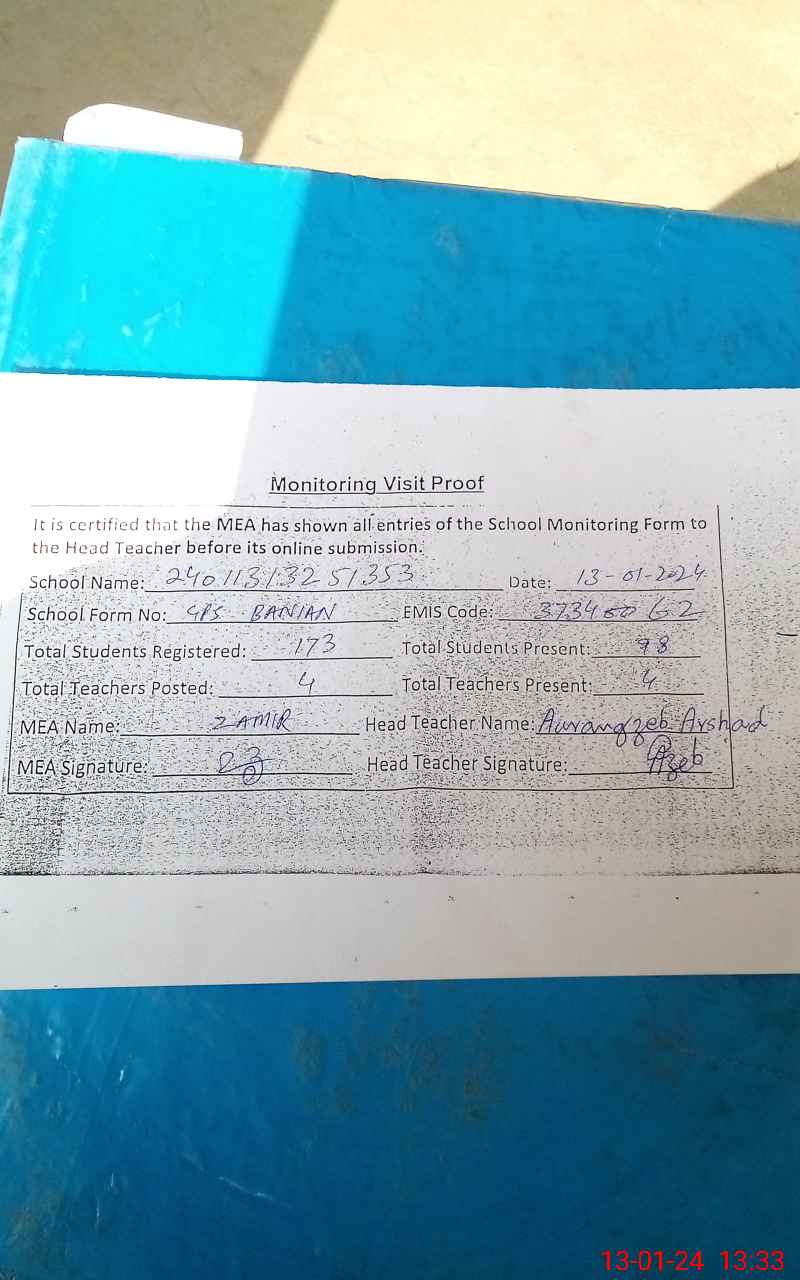 Monitoring Visit Proof
It is certified that the MEA has shown all entries of the School Monitoring Form to
the Head Teacher before its online submission.
School Name: 24011313251353 Date: 13-01-2024
School Form No: GPS BANIAN EMIS Code: 37340062
Total Students Registered: 173 Total Students Present: 98
Total Teachers Posted: 4 Total Teachers Present: 4
MEA Name: ZAMIR Head Teacher Name: Aurangzeb Arshad
MEA Signature: Head Teacher Signature: Azeb
13-01-24 13:33